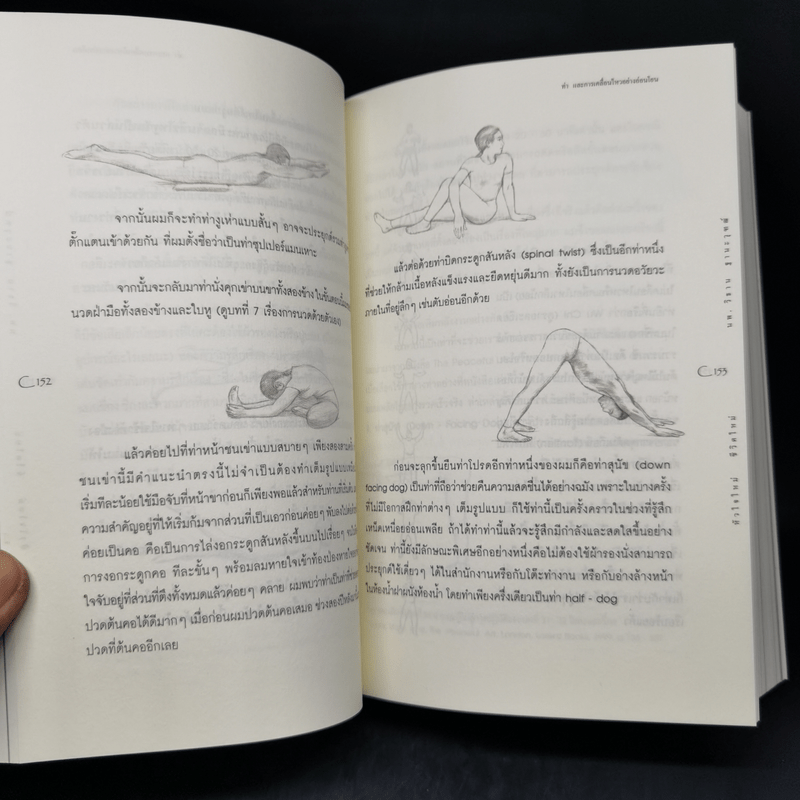 จากนั้นผมก็จะทำท่างูเห่าแบบสั้นๆ อาจจะประยุกต์รวมท่า
ตั๊กแตนเข้าด้วยกัน ที่ผมตั้งชื่อว่าเป็นท่าซุปเปอร์แมนเหาะ
จากนั้นจะกลับมาท่านั่งคุกเข่าบนขาทั้งสองข้าง ในขั้นตอนนี้
นวดฝ่ามือทั้งสองข้างและใบหู (ดูบทที่ 7 เรื่องการนวดด้วยตัวเอง)
152
แล้วค่อยไปที่ท่าหน้าชนเข่าแบบสบายๆ เพียงสอง
ชนเข่านี้มีคำแนะนำตรงนี้ไม่จำเป็นต้องทำเต็มรูปแบบ
เริ่มทีละน้อยใช้มือจับที่หน้าขาก่อนก็เพียงพอแล้วสำหรับท่านที่
ความสำคัญอยู่ที่ให้เริ่มก้มจากส่วนที่เป็นเอวก่อนค่อยๆ พับลงไป
ค่อยเป็นคอ คือเป็นการไล่งอกระดูกสันหลังขึ้นบนไปเรื่อยๆ
การงอกระดูกคอ ทีละขั้นๆ พร้อมลมหายใจเข้าท้องป่อง
ใจจับอยู่ที่ส่วนที่ตึงทั้งหมดแล้วค่อยๆ คลาย ผมพบว่าท่าเป็นท่าที่
ปวดต้นคอได้ดีมากๆ เมื่อก่อนผมปวดต้นคอเสมอ ช่วงสองปี
ปวดที่ต้นคออีกเลย
ท่า และการเคลื่อนไหวอย่างอ่อนโยน
แล้วต่อด้วยท่าบิดกระดูกสันหลัง (spinal twist) ซึ่งเป็นอีกท่าหนึ่ง
ที่ช่วยให้กล้ามเนื้อหลังแข็งแรงและยืดหยุ่นดีมาก ทั้งยังเป็นการนวดอวัยวะ
ภายในที่อยู่ลึกๆ เช่นตับอ่อนอีกด้วย
153
ก่อนจะลุกขึ้นยืนท่าโปรดอีกท่าหนึ่งของผมก็คือท่าสุนัข (down
facing dog) เป็นท่าที่ถือว่าช่วยคืนความสดชื่นได้อย่างฉมัง เพราะในบางครั้ง
ที่ไม่มีโอกาสฝึกท่าต่างๆ เต็มรูปแบบ ก็ใช้ท่านี้เป็นครั้งคราวในช่วงที่รู้สึก
เหน็ดเหนื่อยอ่อนเพลีย ถ้าได้ทำท่านี้แล้วจะรู้สึกมีกำลังและสดใสขึ้นอย่าง
ชัดเจน ท่านี้ยังมีลักษณะพิเศษอีกอย่างหนึ่งคือไม่ต้องใช้ผ้ารองนั่งสามารถ
ประยุกต์ใช้เดี่ยวๆ ได้ในสำนักงานหรือกับโต๊ะทำงาน หรือกับอ่างล้างหน้า
ในห้องน้ำฝาผนังห้องน้ำ โดยทำเพียงครึ่งเดียวเป็นท่า half - dog